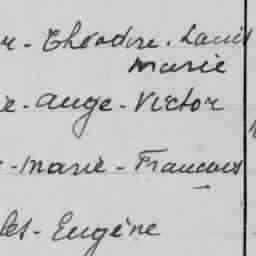 r - Théodore - Louis
Marie
e - Ange - Victor
- Marie - François
les - Eugène